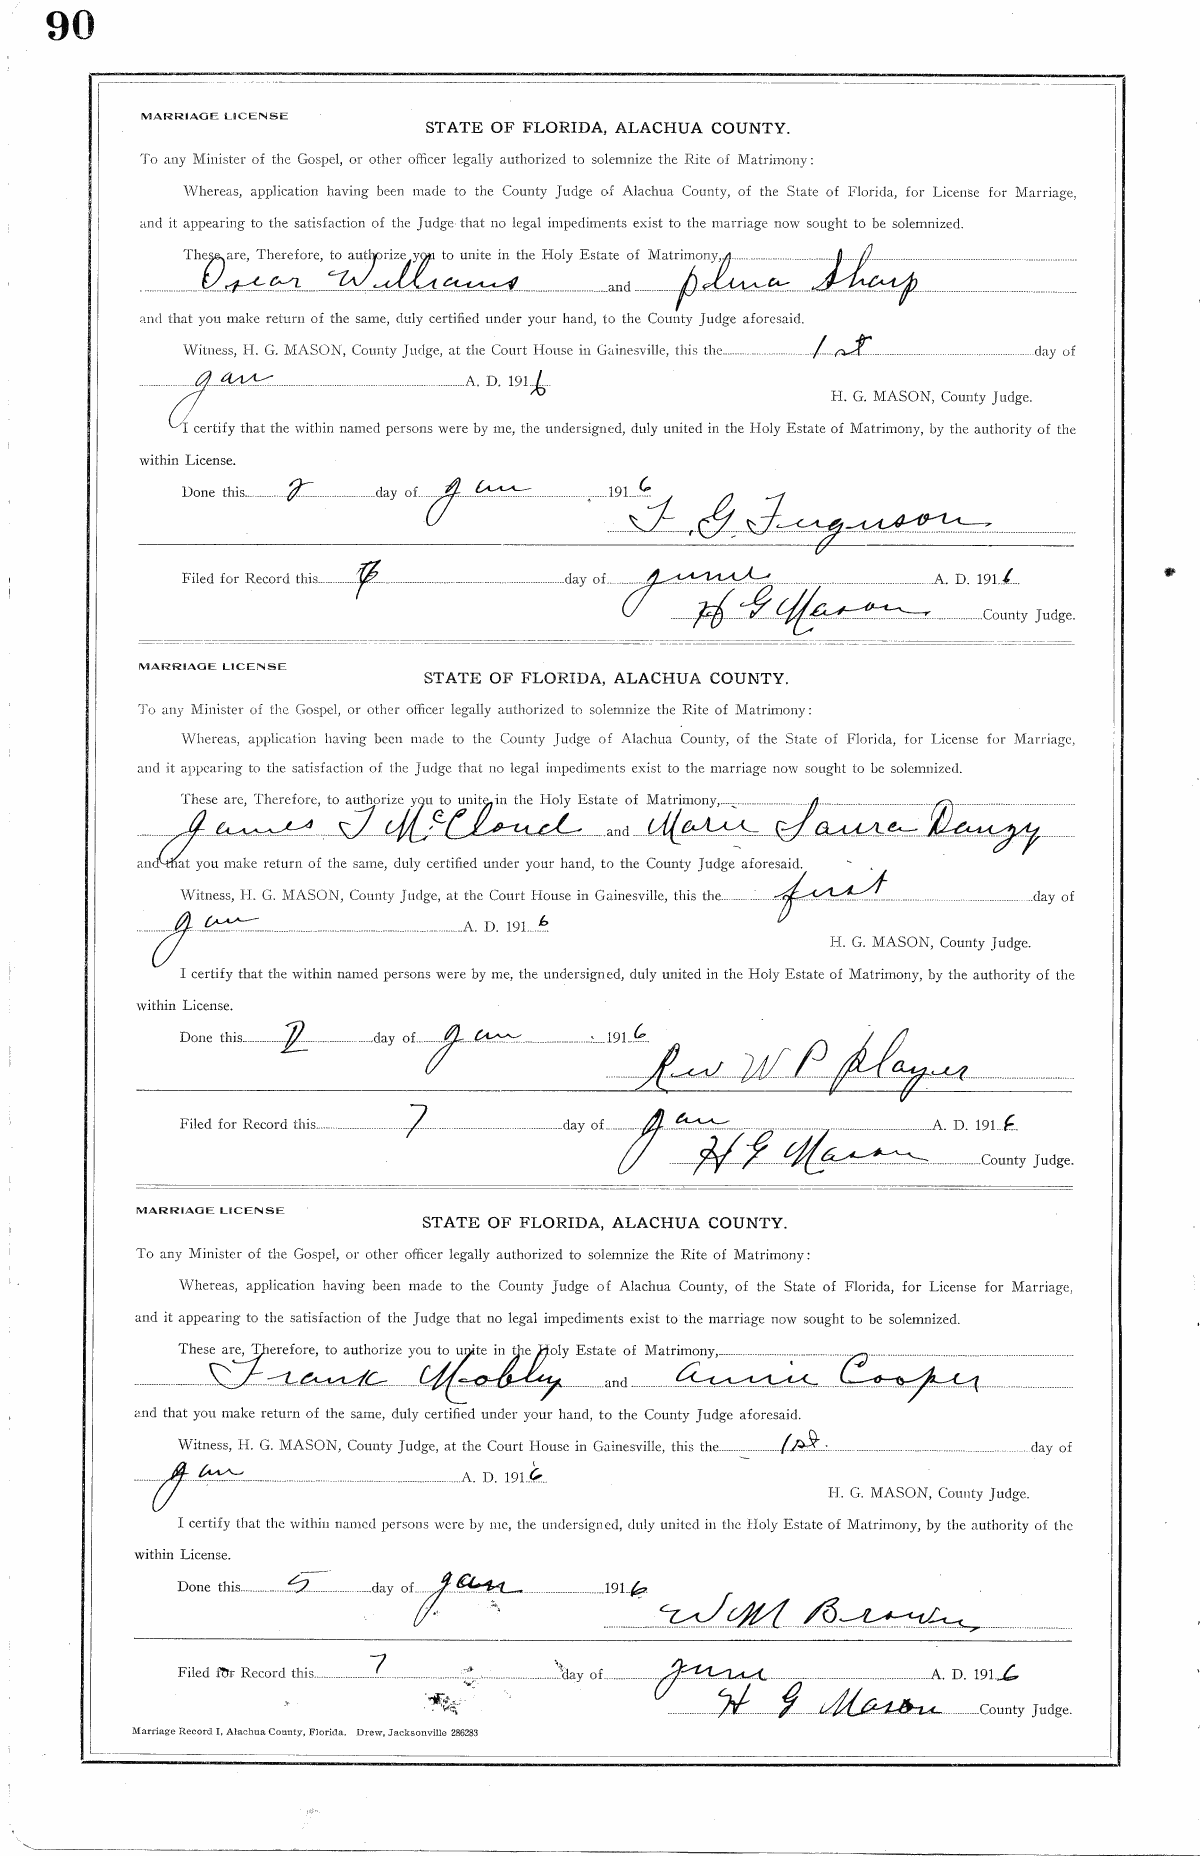 90
MARRIAGE LICENSE
STATE OF FLORIDA, ALACHUA COUNTY.
To any Minister of the Gospel, or other officer legally authorized to solemnize the Rite of Matrimony:
Whereas, application having been made to the County Judge of Alachua County, of the State of Florida, for License for Marriage,
and it appearing to the satisfaction of the Judge that no legal impediments exist to the marriage now sought to be solemnized.
These are, Therefore, to authorize you to unite in the Holy Estate of Matrimony,
Oscar Williams and Sharp
and that you make return of the same, duly certified under your hand, to the County Judge aforesaid.
Witness, H. G. MASON, County Judge, at the Court House in Gainesville, this the 1st day of
Jan A. D. 1916
H. G. MASON, County Judge.
I certify that the within named persons were by me, the undersigned, duly united in the Holy Estate of Matrimony, by the authority of the
within License.
Done this 2 day of Jan 1916
F. G. Ferguson
Filed for Record this day of June A. D. 1916
H G Mason County Judge.
MARRIAGE LICENSE
STATE OF FLORIDA, ALACHUA COUNTY.
To any Minister of the Gospel, or other officer legally authorized to solemnize the Rite of Matrimony:
Whereas, application having been made to the County Judge of Alachua County, of the State of Florida, for License for Marriage,
and it appearing to the satisfaction of the Judge that no legal impediments exist to the marriage now sought to be solemnized.
These are, Therefore, to authorize you to unite in the Holy Estate of Matrimony,
James T McCloud and Marie Laura Danzy
and that you make return of the same, duly certified under your hand, to the County Judge aforesaid.
Witness, H. G. MASON, County Judge, at the Court House in Gainesville, this the first day of
Jan A. D. 1916
H. G. MASON, County Judge.
I certify that the within named persons were by me, the undersigned, duly united in the Holy Estate of Matrimony, by the authority of the
within License.
Done this 2 day of Jan 1916
Rev W P Player
Filed for Record this 7 day of Jan A. D. 1916
H G Mason County Judge.
MARRIAGE LICENSE
STATE OF FLORIDA, ALACHUA COUNTY.
To any Minister of the Gospel, or other officer legally authorized to solemnize the Rite of Matrimony:
Whereas, application having been made to the County Judge of Alachua County, of the State of Florida, for License for Marriage,
and it appearing to the satisfaction of the Judge that no legal impediments exist to the marriage now sought to be solemnized.
These are, Therefore, to authorize you to unite in the Holy Estate of Matrimony,
Frank Mobley and Annie Cooper
and that you make return of the same, duly certified under your hand, to the County Judge aforesaid.
Witness, H. G. MASON, County Judge, at the Court House in Gainesville, this the 1st. day of
Jan A. D. 1916
H. G. MASON, County Judge.
I certify that the within named persons were by me, the undersigned, duly united in the Holy Estate of Matrimony, by the authority of the
within License.
Done this 5 day of Jan 1916
W M Brown
Filed for Record this 7 day of June A. D. 1916
H G Mason County Judge.
Marriage Record I, Alachua County, Florida. Drew, Jacksonville 286283